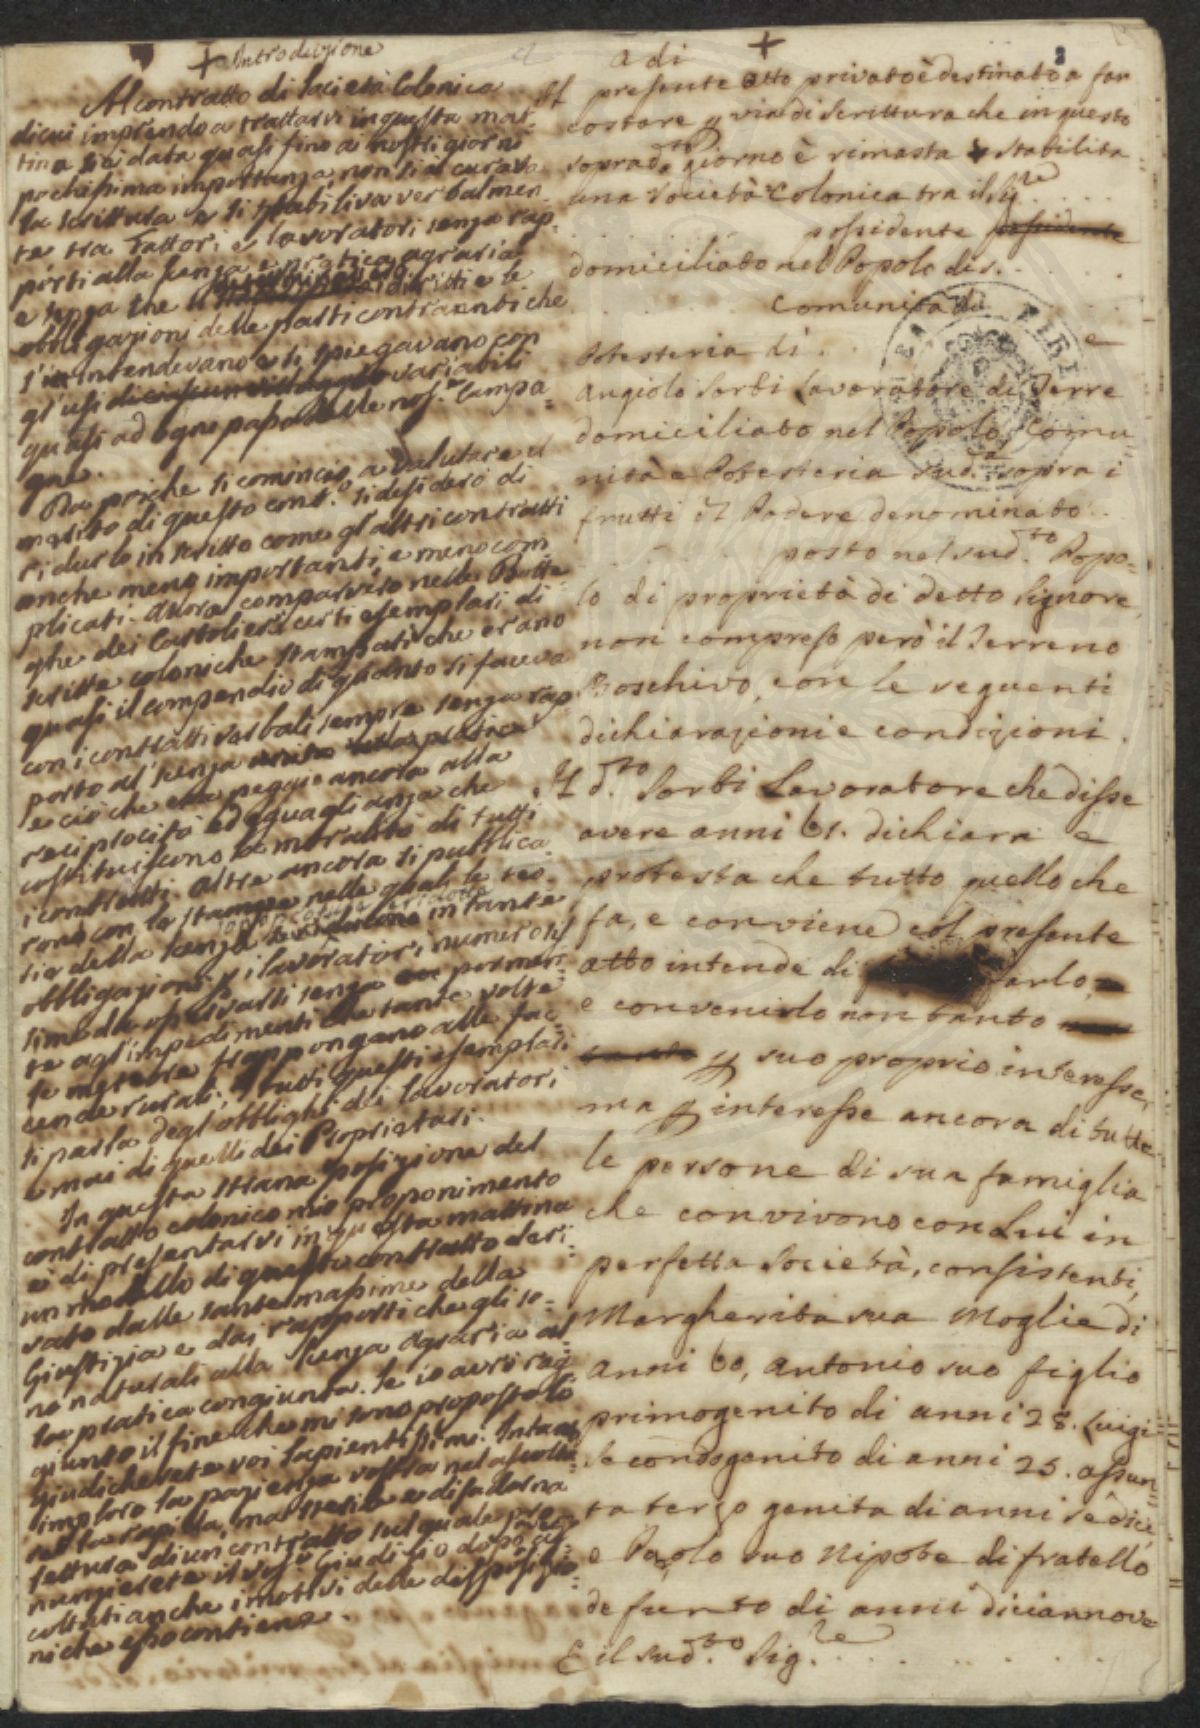 Introduzione
Al contratto di Società Colonica
di cui imprendo a trattarvi in questa mat-
tina si è data quasi fino a nostri giorni
pochissima importanza, non si curava
la scrittura e si stabiliva verbalmen-
te tra Fattori e lavoratori senza rap-
porti alla scienza e pratica agraria
e senza che i diritti e le
obbligazioni delle parti contraenti che
s'intendevano e si spiegavano con
gl'usi variabili
quasi ad ogni passo delle nos.e Campa=
gne.
Da poiche si cominciò a valutare il
merito di questo cont.o si desiderò di
ridurlo in scritto come gl'altri contratti
anche meno importanti, e meno com
plicati. Allora comparvero nelle Botte
ghe dei Cartolieri certi esemplari di
scritte coloniche stampati che erano
quasi il compendio di quanto si faceva
con i contratti verbali sempre senza rap
porto al senza pratica
e ciò che era peggio ancora alla
reciprocità ed eguaglianza che
costituiscono la moralità di tutti
i contratti. Altre ancora si pubblica
rono con le stampe nelle quali le teo-
rie della scienza in tante
obbligazioni p i lavoratori numerosis
sime da osservarsi senza por men-
te agl'impedimenti che tante volte
le meteore frappongono alle fac-
cende rurali. In tutti questi esemplari
si parla degl'obblighi dei lavoratori
e mai di quelli dei Proprietari.
In questa strana posizione del
contratto colonico mio proponimento
è di presentarvi in questa mattina
un modello di questo contratto deri-
vato dalle sante massime della
Giustizia e dai rapporti che gli so-
no naturali alla scienza Agraria al
la pratica congiunta. Se io avrò rag
giunto il fine che mi sono proposto lo
giudicherete voi sapientissimi. Intanto
imploro la pazienza vostra nel ascolta
re la rapida, materiale e disadorna
lettura di un contratto sul quale pro
nunzierete il vos.o Giudizio dopo as-
coltati anche i motivi delle disposizio=
ni che esso contiene.
a di
Il presente atto privato è destinato a far
costare p via di Scrittura che in questo
soprad.to giorno è rimasta stabilita
una Società Colonica tra il sig.re
possidente
domiciliato nel Popolo di S.
Comunità di
Potesteria di. e
Angiolo Sorbi Lavoratore di Terre
domiciliato nel Popolo, Comu=
nità e Potesteria Sud.a sopra i
frutti del Podere denominato
posto nel sud.to Popo=
lo di proprietà di detto Signore,
non compreso però il Terreno
Boschivo, con le seguenti
dichiarazioni e condizioni.
Il d.to Sorbi Lavoratore che disse
avere anni 61. dichiara e
protesta che tutto quello che
fa, e conviene col presente
atto intende di farlo,
e convenirlo non tanto
p suo proprio interesse,
ma p interesse ancora di tutte
le persone di sua famiglia
che convivono con Lui in
perfetta Società, consistenti,
Margherita sua Moglie di
anni 60, Antonio suo figlio
primogenito di anni 28. Luigi
secondogenito di anni 25. Assun=
ta terzo genita di anni sedici,
e Paolo suo Nipote di fratello
defunto di anni diciannove
E il sud.to Sig.re